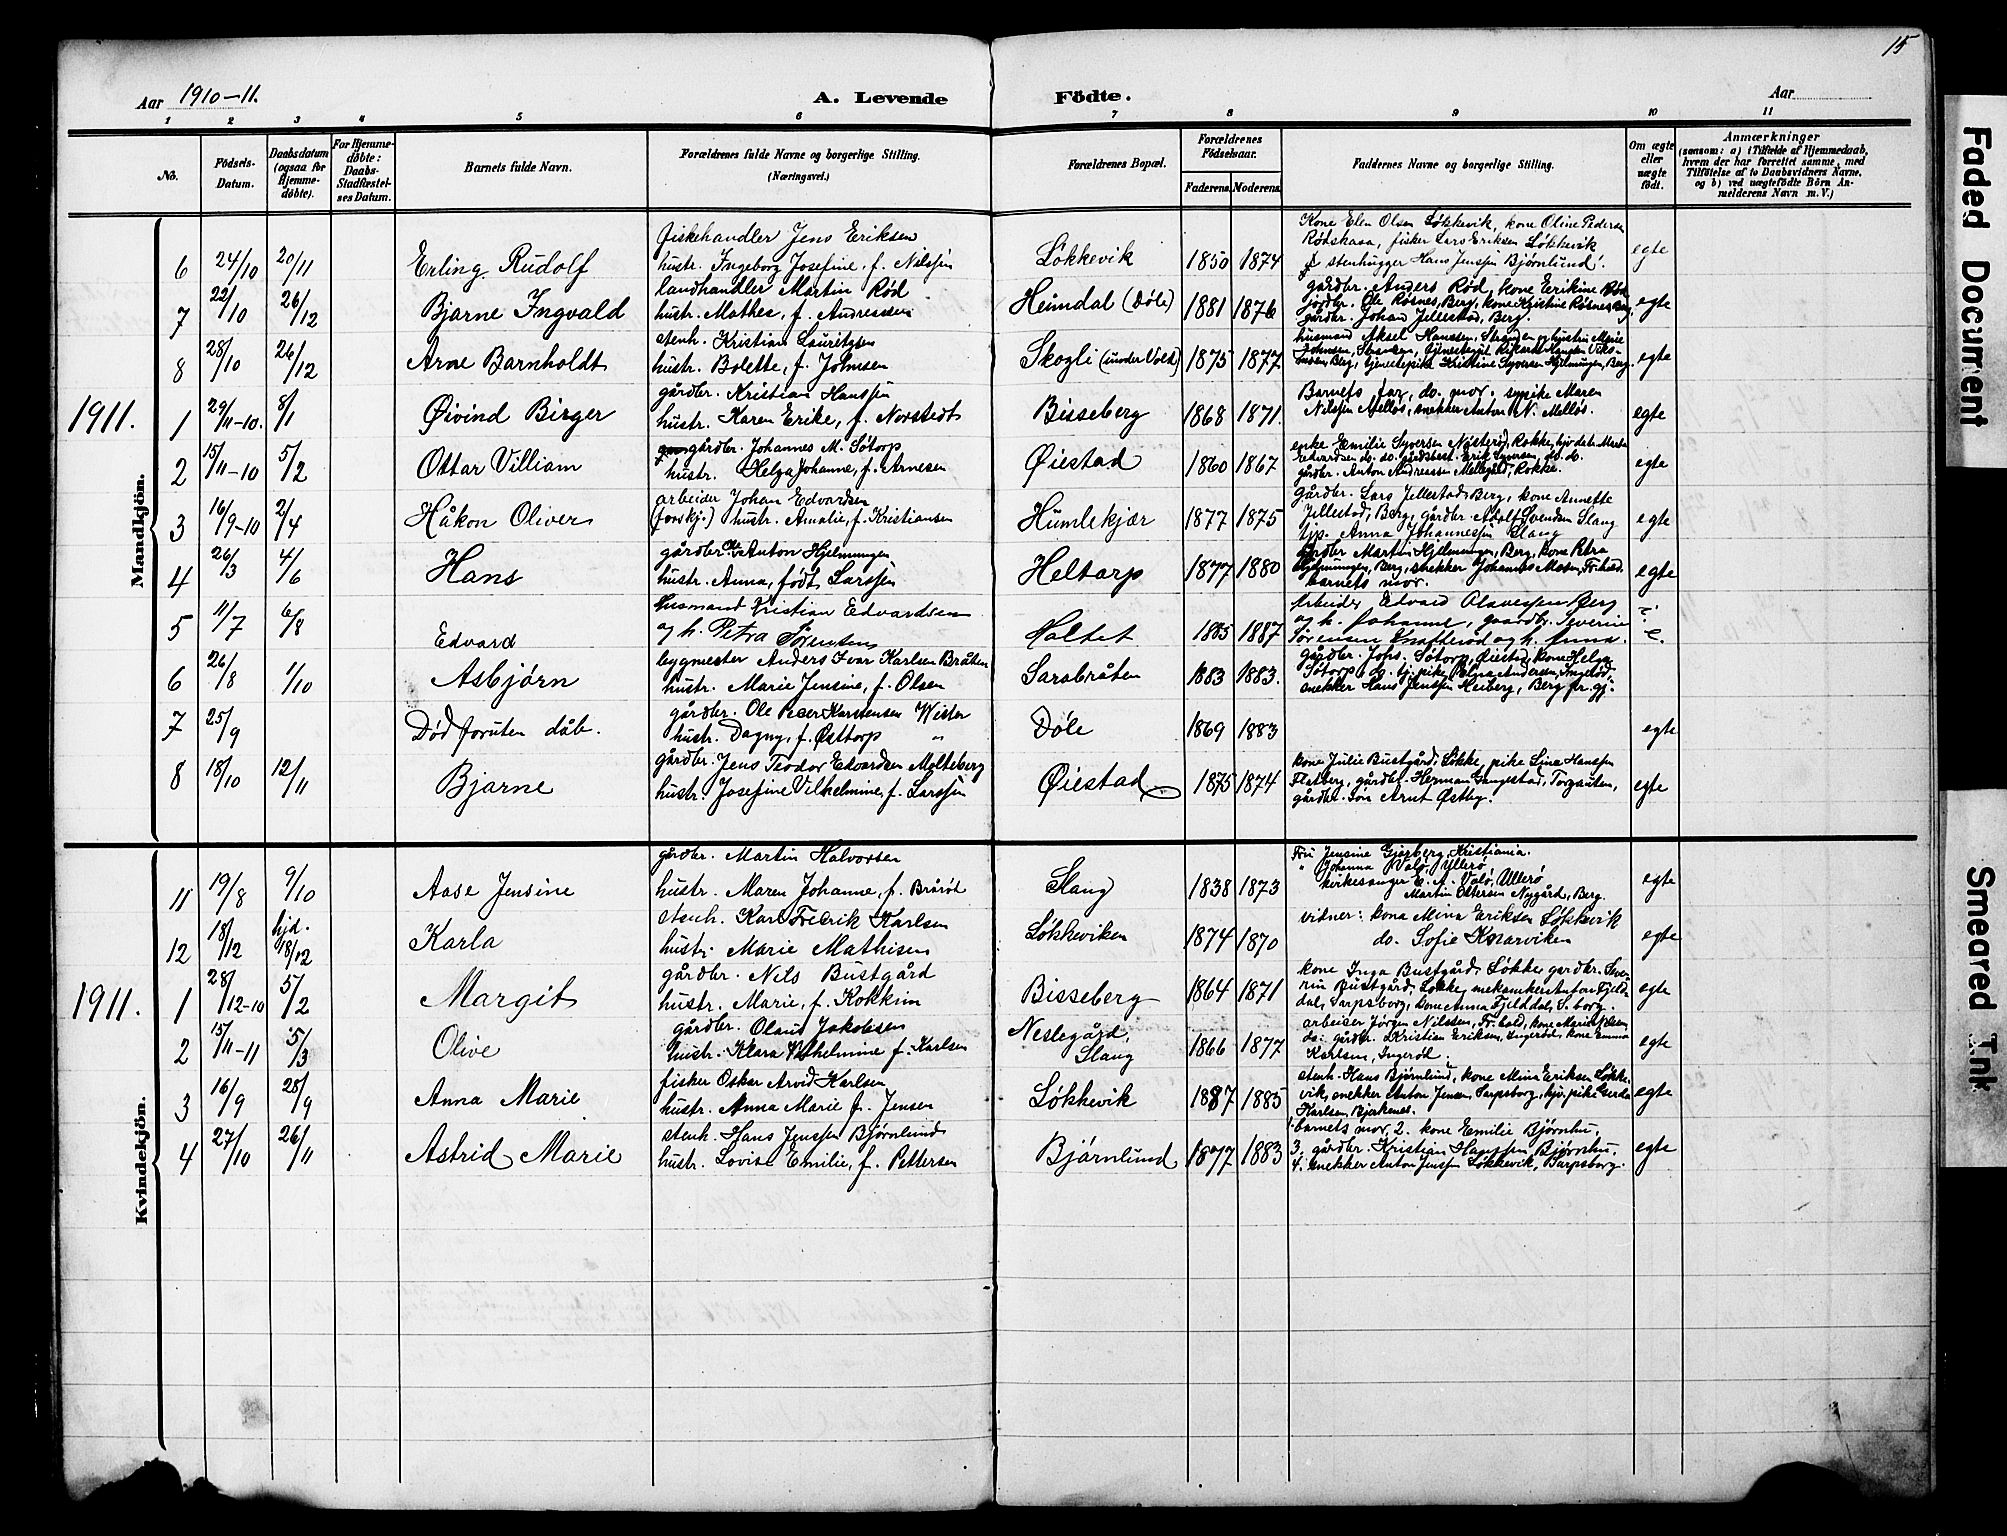 15
Aar 1910-11. A. Levende Fødte. Aar
1 2 3 4 5 6 7 8 9 10 11
No. Fødsels-Datum. Daabsdatum (ogsaa for Hjemmedøbte). For Hjemmedøbte: Daabs-Stadfæstelses Datum. Barnets fulde Navn. Forældrenes fulde Navne og borgerlige Stilling. (Næringsvei.) Forældrenes Bopæl. Forældrenes Fødselsaar. Faderens. Moderens. Faddernes Navne og borgerlige Stilling. Om ægte eller uægte født. Anmærkninger (saasom: a) i Tilfælde af Hjemmedaab, hvem der har forrettet samme, med Tilføielse af to Daabsvidners Navne, og b) ved uægtefødte Børn Anmelderens Navn m.V.)
Mandkjøn.
6 24/10 20/11 Erling Rudolf fiskehandler Jens Eriksen
hustr. Ingeborg Josefine, f. Nilssen Løkkevik 1850 1874 Kone Elen Olsen Løkkevik, kone Oline Pedersen
Rødskasa, fisker Lars Eriksen Løkkevik
stenhugger Hans Jenssen Bjørnlund. egte
7 22/10 26/12 Bjarne Ingvald landhandler Martin Rød
hustr. Mathea, f. Andreassen Heimdal (Døle) 1881 1876 gårdbr. Anders Rød, kone Erikine Rød
jordbr. Ole Røsnes, Berg, kone Kristine Røsnes, Berg,
gårdbr. Johan Jellestad, Berg. egte
8 28/10 26/12 Arne Barnholdt stenh. Kristian Lauritzsen
hustr. Bolette, f. Johnsen Skogli (under Vold) 1875 1877 husmand Aksel Hanssen, Stranden og hustru Marie
Johnsen, Kristine Syversen Hjelmungen, Berg. egte
1911. 1 29/11-10. 8/1 Øivind Birger gårdbr. Kristian Hanssen
hustr. Karen Erike, f. Norstedt Bisseberg 1868 1871. Barnets far, do. mor. spike Maren
Nilssen Melløs, snekker Anton N. Melløs. egte
2 15/11-10 5/2 Ottar Villiam gårdbr. Johannes M. Søtorp
hustr. Helga Johanne, f. Arnesen Øiestad 1860 1867 enke Emilie Syversen Nøsterød, Rokke, hjv. datr. Marta
Edvardsen do. do. Gårdsbest. Erik Syversen, do. do.
gårdbr. Anton Andreassen Mellegård, Rokke. egte
3 16/9-10 2/4 Håkon Oliver arbeider Johan Edvardsen
hustr. Amalie, f. Kristiansen Humlekjær 1877 1875 Gårdbr. Lars Jellestad, Berg, kone Annette
Jellestad, Berg, gårdbr. Adolf Svendsen Slang
tjp. Anna Johannessen Slang egte
4 26/3 4/6 Hans gårdbr. Ole Anton Hjelmungen
hustr. Anna, født Larssen Heltorp 1877 1880 gårdbr Martin Hjelmungen, Berg, kone Petra
Hjelmungen, Berg, snekker Johannes Mosen, Fr.hald.
barnets mor. egte
5 11/7 6/8 Edvard Husmand Kristian Edvardsen
og h. Petra Sørensen Holtet 1885 1887 Arbeider Edvard Olavessen Berg
og h. Johanne, gaardbr. Severin
Sørensen Knatterød og h. Anna.
6 26/8 1/10 Asbjørn bygmester Anders Ivar Karlsen Bråten
hustr. Marie Jensine, f. Olsen Sarabråten 1883 1883. gårdbr. Johs. Søtorp, Øiestad, kone Helga
Søtorp do. tj. pike Andersen, Ingerød,
snekker Hans Jenssen Heiberg, Berg pr. gj.
7 25/9 Død foruten dåb. gårdbr. Ole Peder Karstensen Wister
hustr. Dagny, f. Østtorp " Døle 1869 1883 egte
8 18/10 12/11 Bjarne gårdbr. Jens Teodor Edvardsen Molteberg
hustr. Josefine Vilhelmine, f. Larssen Øiestad 1875 1874 kone Julie Bustgård, Løkke, pike Lina Hanssen
Flatberg, gårdbr. Herman Gangestad, Torgauten,
gårdbr. søn Arnt Østby. egte
Kvindekjøn.
11 19/8 9/10 Aase Jensine gårdbr. Martin Halvorsen
hustr. Maren Johanne, f. Brårød Slang 1838 1873 Fru Jensine Gjøeberg, Kristiania.
" Johanna Valø, Ullerø
kirkesanger E. A. Valø, Ullerø
Martin Ottersen Nygård, Berg. egte
12 18/12 hjd. 18/12 Karla stenh. Karl Fredrik Karlsen
hustr. Marie Mathisen Løkkeviken 1874 1870 vidner: kona Mina Eriksen Løkkevik
do. Sofie Knarviken egte
1911. 1 28/12-10 5/2 Margit gårdbr. Nils Bustgård
hustr. Marie, f. Kokkim Bisseberg 1864 1871 kone Inga Bustgård, Løkke, gårdbr. Seve-
rin Bustgård, Løkke, mekaniker Anton Fjeld-
dal, Sarpsborg, kone Anna Fjelddal, S.borg. egte
2 15/11-11 5/3 Olive gårdbr. Olaus Jakobsen
hustr. Klara Vilhelmine f. Karlsen Neslegård,
Slang 1866 1877 arbeider Jørgen Nilssen, Fr.hald, kone Marie Nilssen,
do. gårdbr. Kristian Eriksen, Ingerød, kone Emma
Karlsen, Ingerød. egte
3 16/9 28/9 Anna Marie fisker Oskar Arvid Karlsen
hustr. Anna Marie f. Jensen Løkkevik 1887 1885 stenh. Hans Bjørnlund, kone Mina Eriksen Løkke-
vik, snekker Anton Jensen, Sarpsborg, hjv. pike Gerda
Karlsen, Bjerkenes. egte
4 27/10 26/11 Astrid Marie stenh. Hans Jenssen Bjørnlund
hustr. Lovise Emilie, f. Pettersen Bjørnlund 1877 1883 1. barnets mor, 2. kone Emilie Bjørnhu,
3. gårdbr. Kristian Hanssen, Bjørnhu,
4. snekker Anton Jenssen Løkkevik, Sarpsborg. egte
Faded Document
Smeared Ink